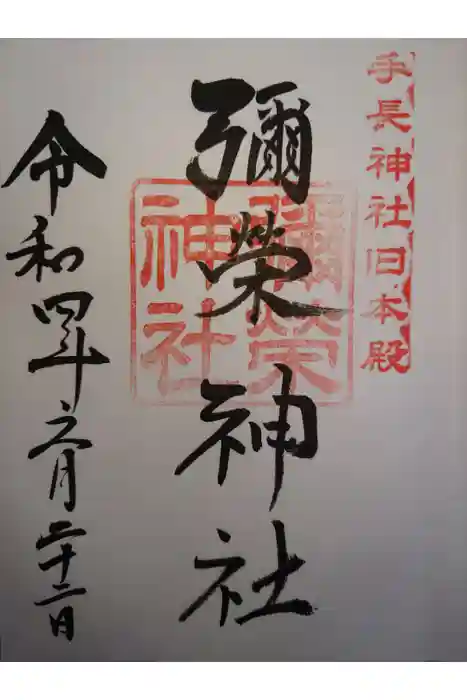 手長神社旧本殿
彌榮神社
彌榮
神社
令和四年六月二十二日